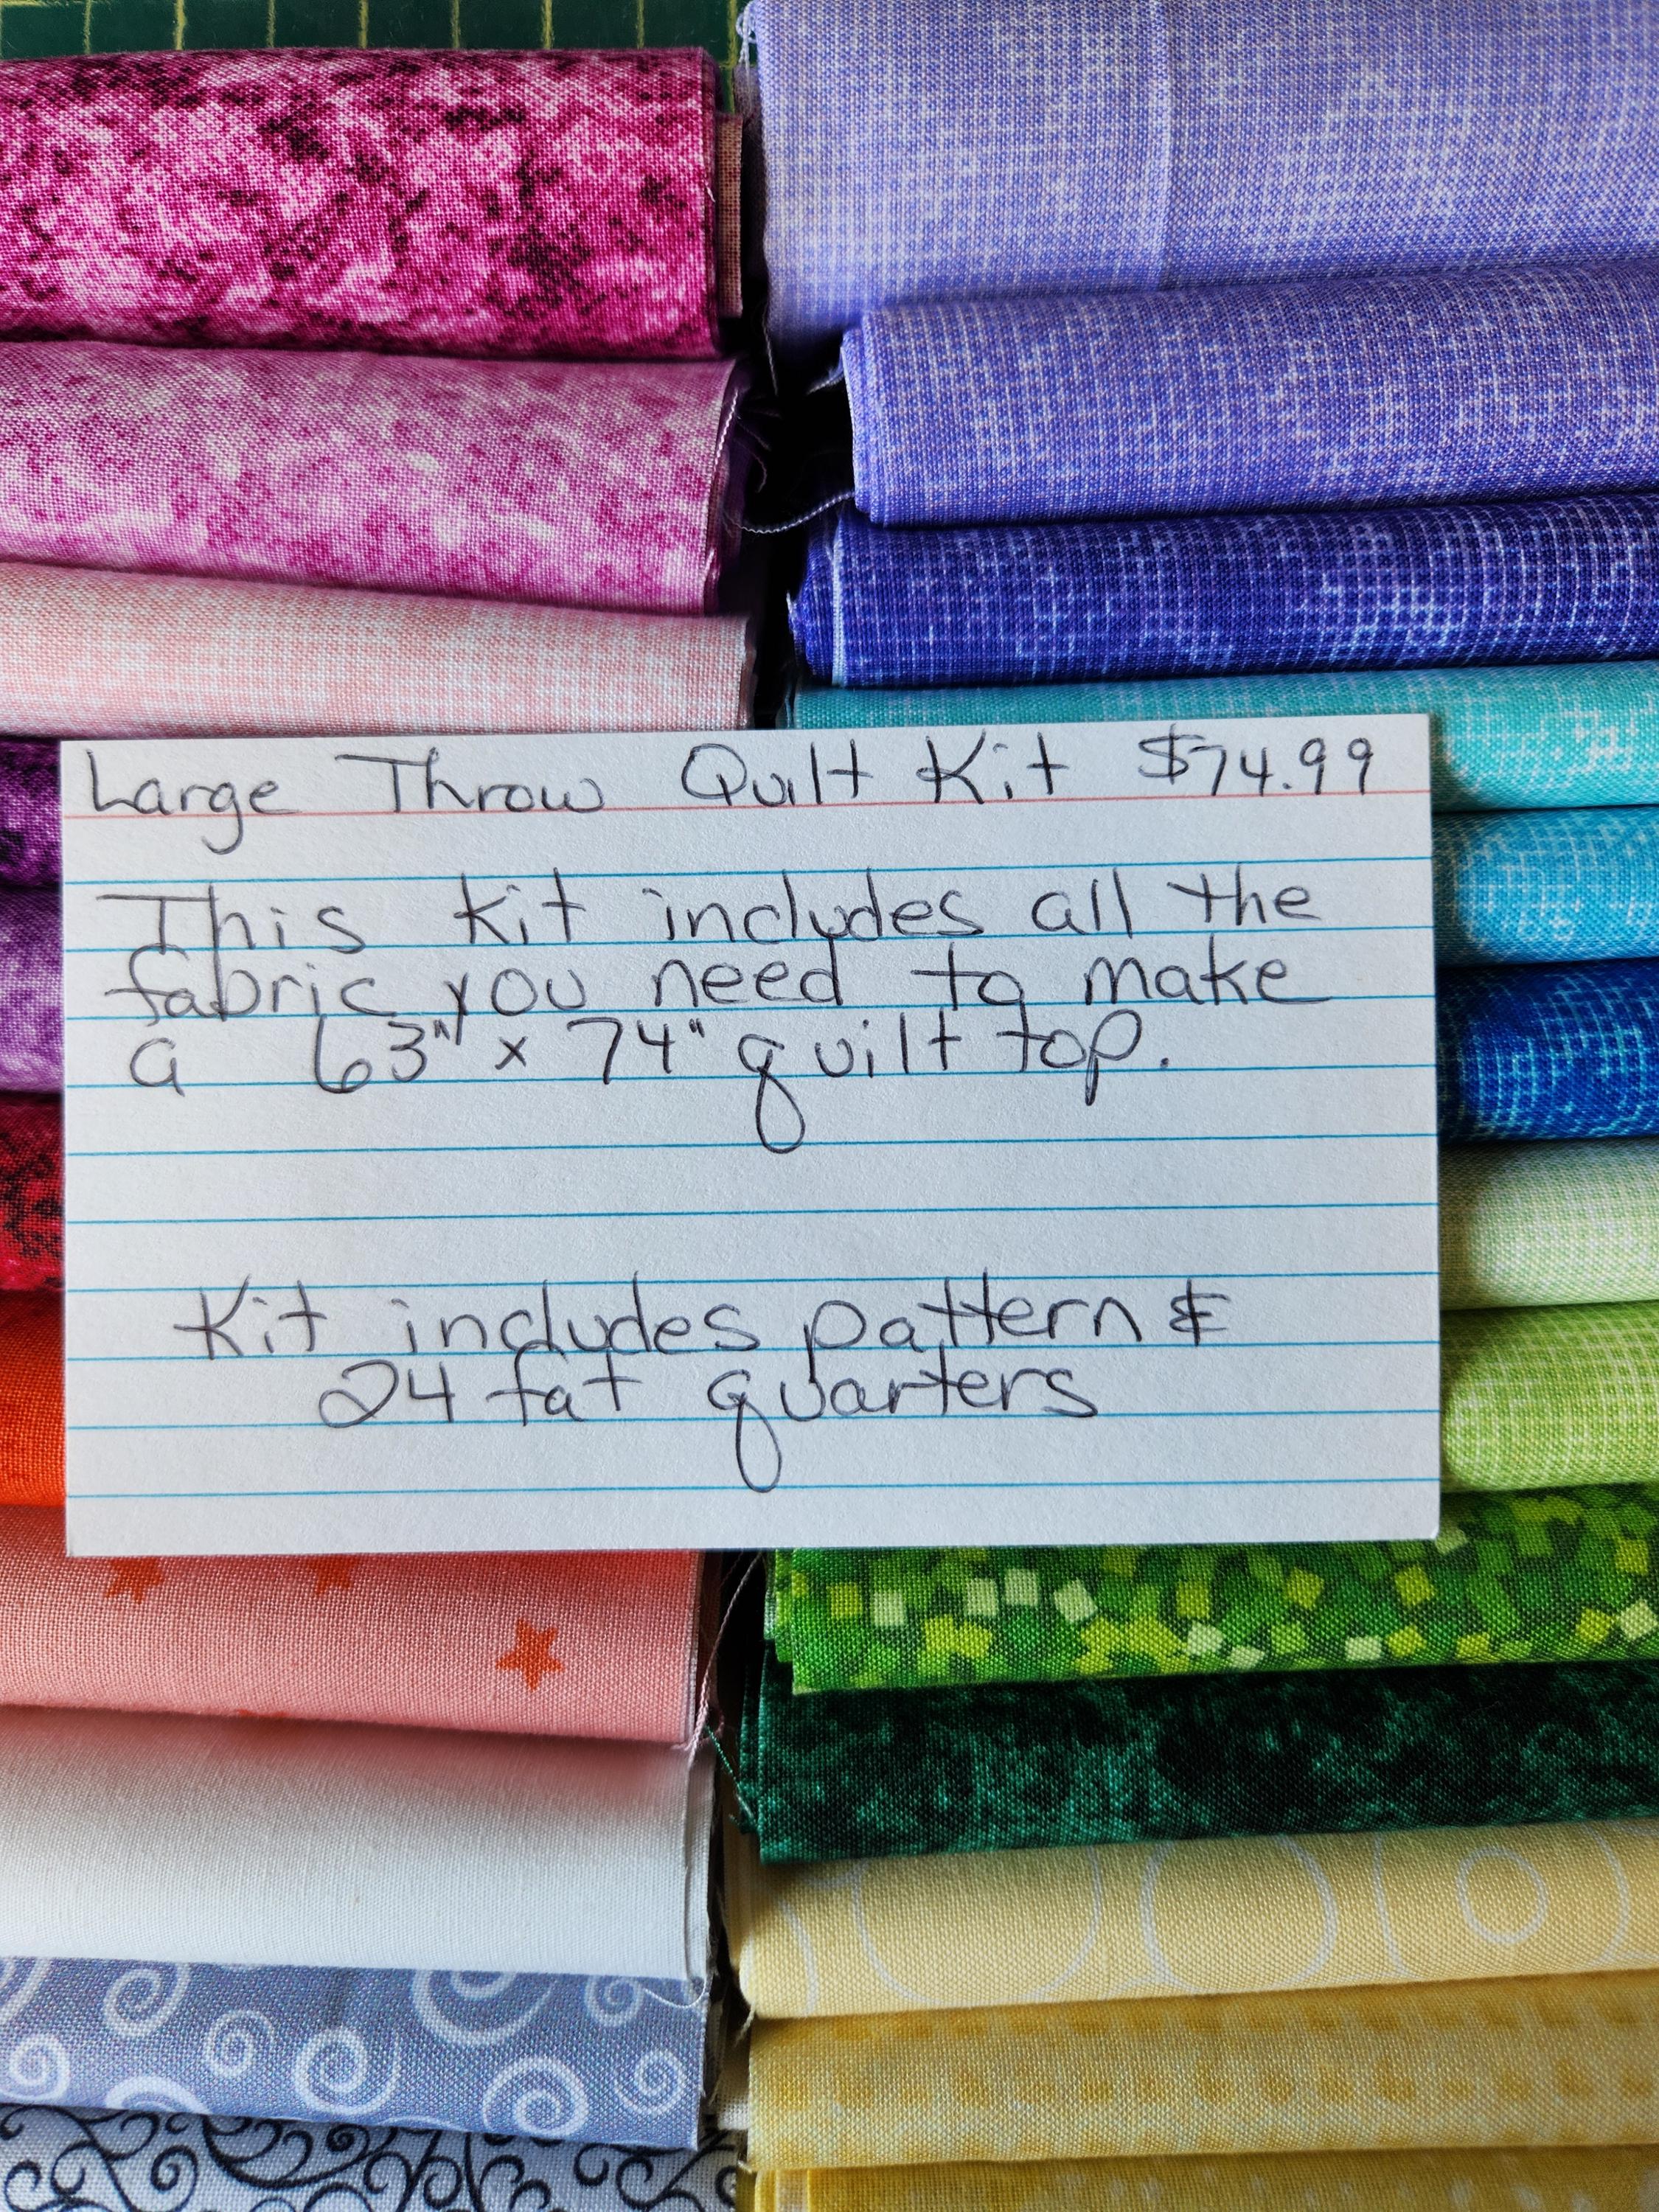 Large Throw Quilt Kit $74.99
This Kit includes all the
fabric you need to make
a 63" x 74" quilt top.
Kit includes pattern &
24 fat quarters